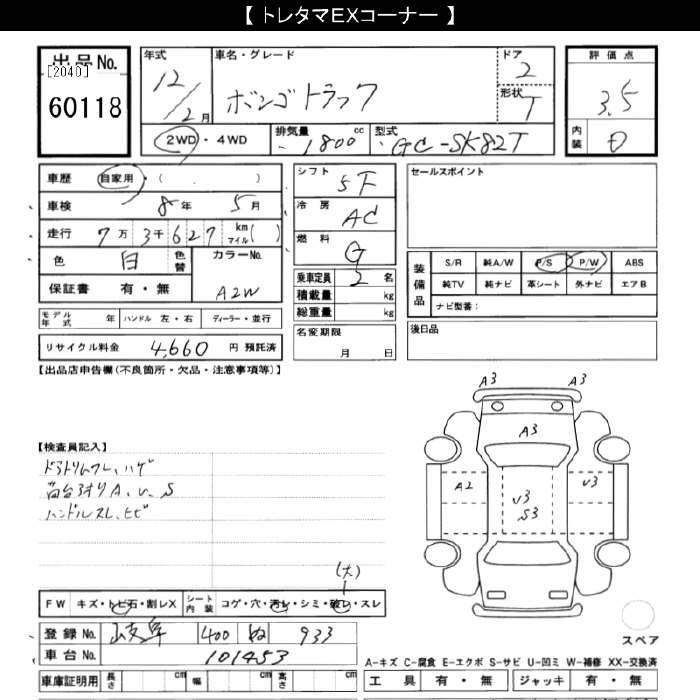 【 トレタマEXコーナー 】
出品No.
[2040]
60118
年式
12/2月
車名・グレード
ボンゴトラック
ドア
2
形状
T
評価点
3.5
内装
D
2WD ・ 4WD
排気量 1800 cc
型式 GC-SK82T
車歴 自家用・( )
車検 8年 5月
走行 7万 3千 6 2 7 km マイル( )
色 白 色替
カラーNo.
A2W
保証書 有・無
モデル年式 年 ハンドル 左・右 ディーラー・並行
リサイクル料金 4,660 円 預託済
シフト
5F
冷房
AC
燃料
G
乗車定員 2 名
積載量 kg
総重量 kg
名変期限
月 日
セールスポイント
装備品
S/R 純A/W P/S P/W ABS
純TV 純ナビ 革シート 外ナビ エアB
ナビ型番:
後日品
【出品店申告欄(不良箇所・欠品・注意事項等)】
【検査員記入】
荷台3オリ A、U、S
ハンドルスレ、ヒビ
A3 A3
A3
A2
U3
S3
U3
(大)
FW キズ・トビ石・割レX シート内装 コゲ・穴・汚レ・シミ・破レ・スレ
登録No. 岐阜 400 ぬ 933
車台No. 101453
車庫証明用 長さ cm 幅 cm 高さ cm
スペア
A-キズ C-腐食 E-エクボ S-サビ U-凹ミ W-補修 XX-交換済
工具 有・無 ジャッキ 有・無